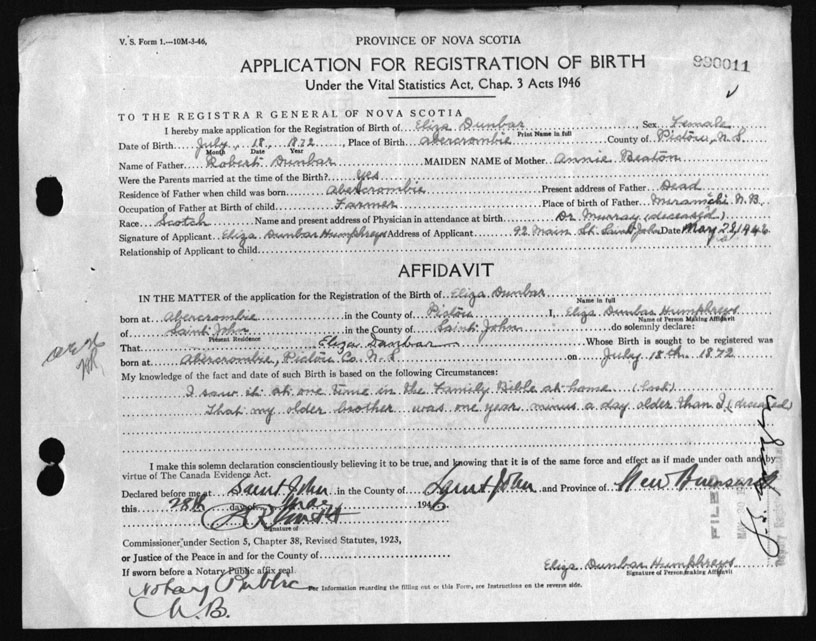 V. S. Form 1.—10M-3-46,
PROVINCE OF NOVA SCOTIA
APPLICATION FOR REGISTRATION OF BIRTH
990011
Under the Vital Statistics Act, Chap. 3 Acts 1946
TO THE REGISTRAR GENERAL OF NOVA SCOTIA
I hereby make application for the Registration of Birth of Eliza Dunbar Sex Female
Print Name in full
Date of Birth July 18 1872 Place of Birth Abercrombie County of Pictou, N.S.
Month Date Year
Name of Father Robert Dunbar MAIDEN NAME of Mother Annie Beaton
Were the Parents married at the time of the Birth? Yes
Residence of Father when child was born Abercrombie Present address of Father Dead
Occupation of Father at Birth of child Farmer Place of birth of Father Miramichi N.B.
Race Scotch Name and present address of Physician in attendance at birth Dr. Murray (deceased)
Signature of Applicant Eliza Dunbar Humphreys Address of Applicant 92 Main St. Saint John Date May 1946
Relationship of Applicant to child
AFFIDAVIT
IN THE MATTER of the application for the Registration of the Birth of Eliza Dunbar
Name in full
born at Abercrombie in the County of Pictou I, Eliza Dunbar Humphreys
Name of Person Making Affidavit
of Saint John in the County of Saint John do solemnly declare:
Present Residence
That Eliza Dunbar Whose Birth is sought to be registered was
born at Abercrombie, Pictou Co. N.S. on July 18th 1872
My knowledge of the fact and date of such Birth is based on the following Circumstances:
I saw it at one time in the Family Bible at home (lost)
That my older brother was one year minus a day older than I (deceased)
I make this solemn declaration conscientiously believing it to be true, and knowing that it is of the same force and effect as if made under oath and by
virtue of The Canada Evidence Act.
Declared before me at Saint John in the County of Saint John and Province of New Brunswick
this 28th day of May 1946
Signature of
Commissioner under Section 5, Chapter 38, Revised Statutes, 1923,
or Justice of the Peace in and for the County of
If sworn before a Notary Public affix seal
Eliza Dunbar Humphreys
Signature of Person making Affidavit
Notary Public
N.B.
For Information regarding the filling out of this Form, see Instructions on the reverse side.
FILED